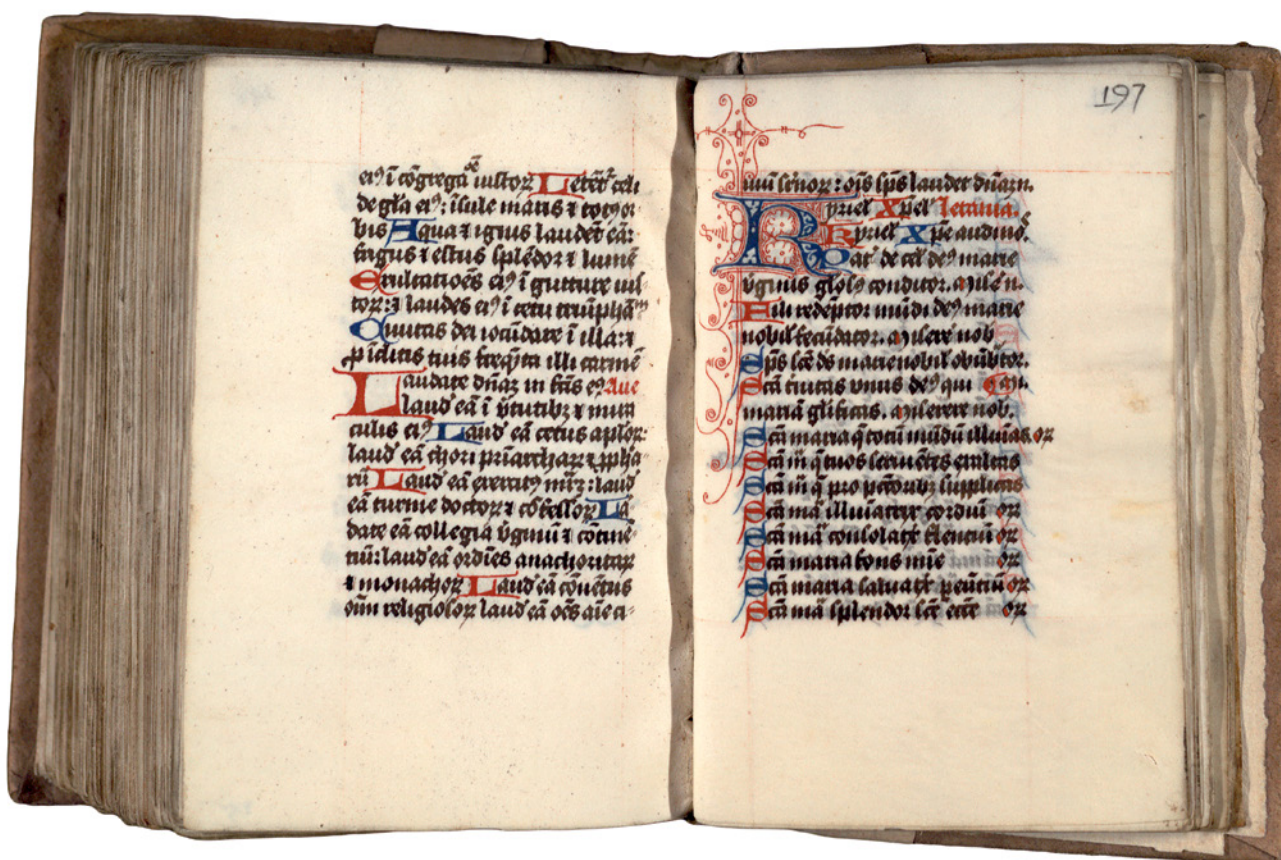 eiꝰ ī cōgregā iustoꝝ Letēt celi
de gl̄a eiꝰ: īsule maris ⁊ totꝰ or-
bis Aqua ⁊ ignis laudēt eā:
frigus ⁊ estus splēdor ⁊ lumē
Exultatioēs eiꝰ ī gutture ius-
toꝝ: ⁊ laudes eiꝰ ī cetu triūphā
Ciuitas dei iocūdare ī illa: ⁊
ꝓ īclitis tuis freq̄nta illi carmē
Laudate dn̄aꝫ in sc̄is eꝰ Aue
Laud eā ī v̄tutibꝫ ⁊ mira
culis eiꝰ Laud eā cetus apl̄oꝝ:
laud eā chori pr̄iarchaꝝ ⁊ ꝓpha-
rū Laud eā exercitꝰ mr̄ꝫ: laud
eā turme doctoꝝ ⁊ cōfessoꝝ Lā
date eā collegia v̄ginū ⁊ cōtinē-
tiū: laud eā ordīes anachoritaꝝ
⁊ monachoꝝ Laud eā cōuētus
oīm religiosoꝝ laud eā oēs aīe ci-
197
uiū senoꝝ: oīs sp̄s laudet dn̄am.
Kyriel Xp̄el letania.
Kyriel Xp̄e audi noˢ
Pat̄ de cel deꝰ marie
v̄ginis gl̄oſꝰ conditor. miſe n.
Fili redēptor mūdi deꝰ marie
nobil fecūdator. miserē nob
Sps sc̄e ds marie nobil obūbr̄tor.
Sc̄a t̄nitas vnus deꝰ qui
mariā gl̄ificas. miserere nob.
Sc̄a maria q̄ totū mūdū illuīas. oꝛ
Sc̄a m̄ q̄ tuos seruiētes exaltas
Sc̄a m̄ q̄ pro pc̄oribꝫ supplicas
Sc̄a mā illuīatrix cordiū oꝛ
Sc̄a mā consolat̄x flentiū oꝛ
Sc̄a maria fons mīe oꝛ
Sc̄a maria saluat̄x peūtiū oꝛ
Sc̄a mā splendor sc̄e ecc̄e oꝛ